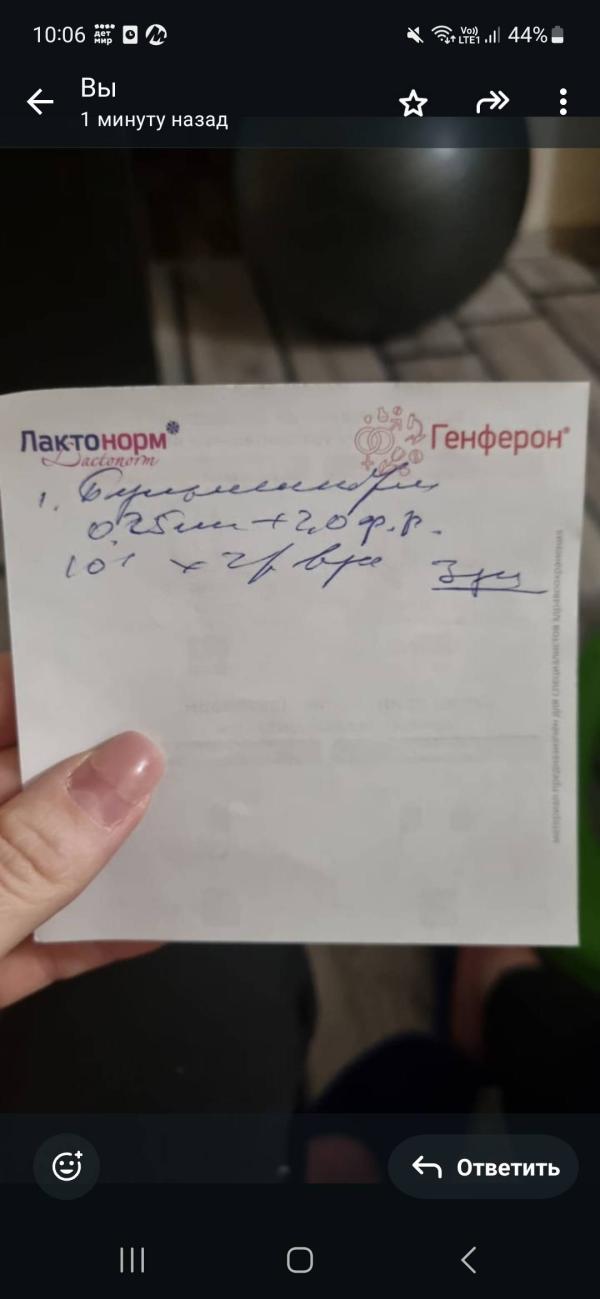 10:06 дет мир Vo)) LTE1 44%
Вы
1 минуту назад
Лактонорм Генферон
Lactonorm
1.
0,25мл + 2,0 ф.р.
3 дн
материал предназначен для специалистов здравоохранения
Ответить